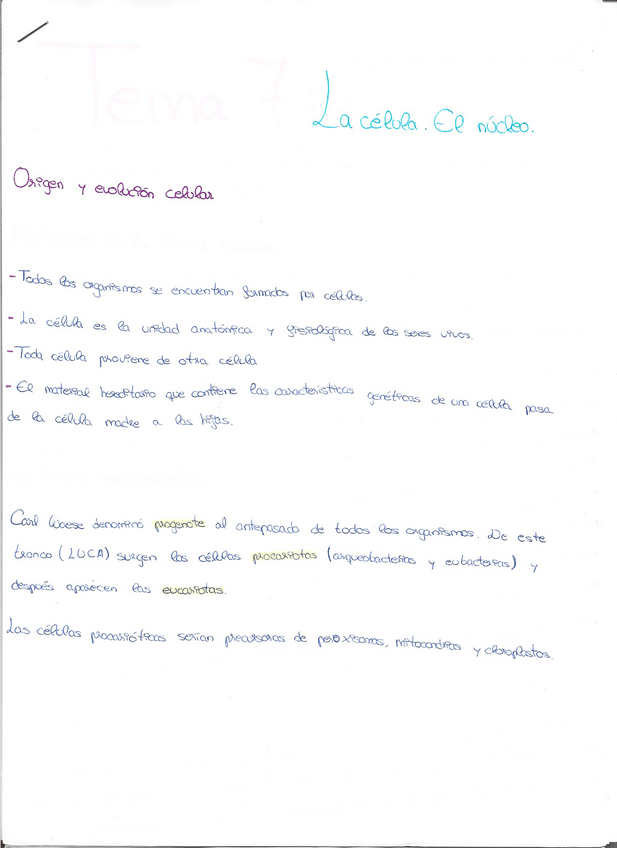 Tema 7:
La célula. El núcleo.
Origen y evolución celular
- Todos los organismos se encuentran formados por células.
- La célula es la unidad anatómica y fisiológica de los seres vivos.
- Toda célula proviene de otra célula
- El material hereditario que contiene las características genéticas de una célula pasa
de la célula madre a las hijas.
Carl Woese denominó progenote al antepasado de todos los organismos. De este
tronco (LUCA) surgen las células procariotas (arqueobacterias y eubacterias) y
después aparecen las eucariotas.
Las células procarióticas serían precursoras de peroxisomas, mitocondrias y cloroplastos.